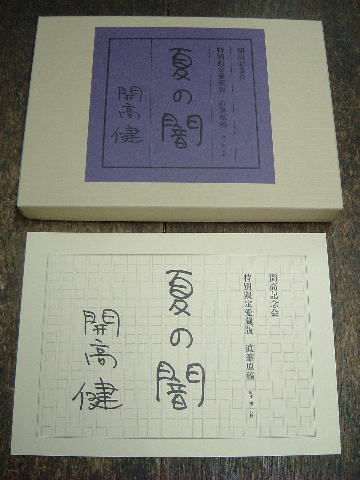 開高記念会
特別限定愛蔵版 直筆原稿
夏の闇
開高健
開高記念会
特別限定愛蔵版 直筆原稿
夏の闇
開高健